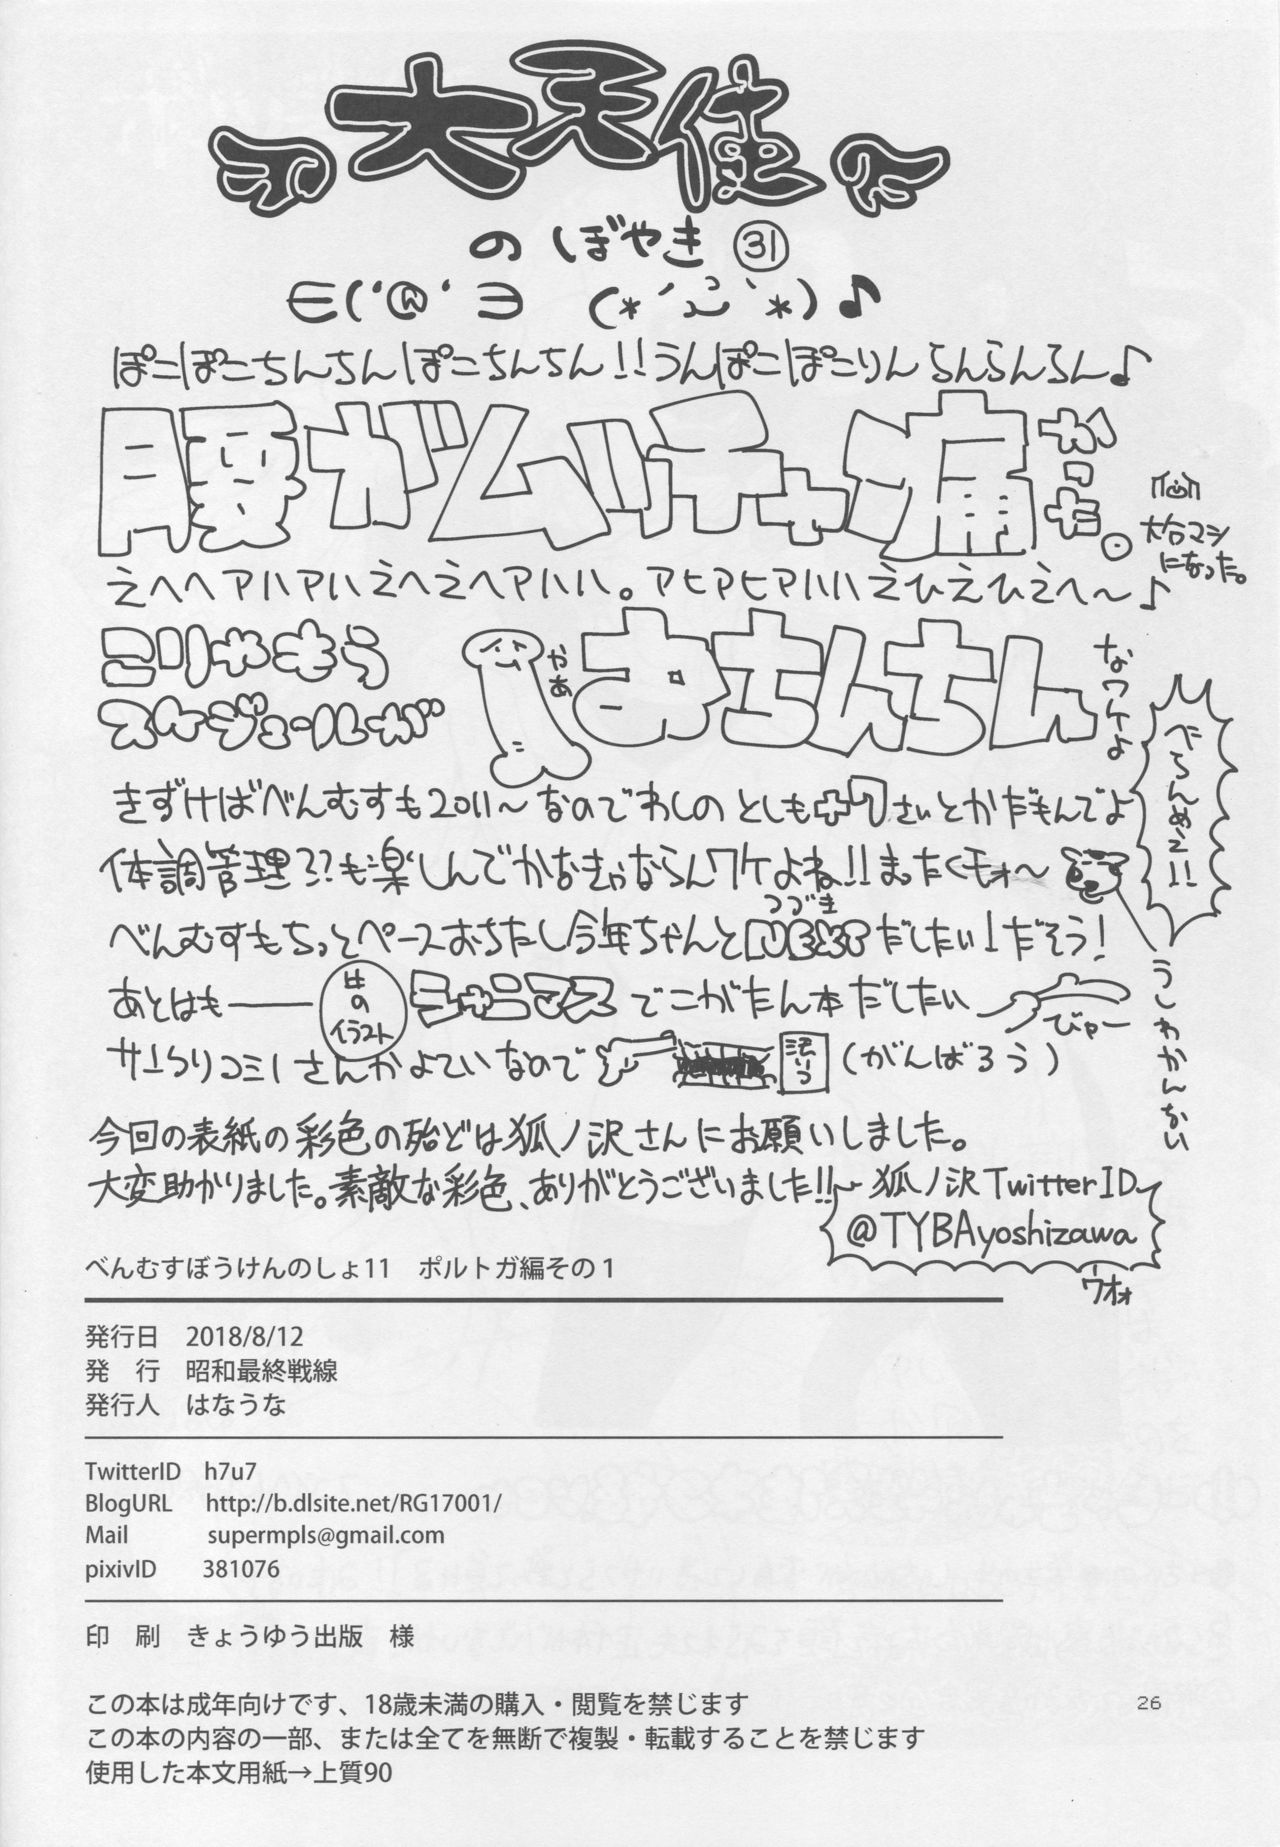 大天使
のぼやき㉛
∈('@'∋ (*´ `*)♪
ぽこぽこちんちんぽこちんちん!!うんぽこぽこりんらんらんらん♪
腰がムッチャ痛かった。
大分マシ
になった。
えへへアハアハえへえへアハハハ。アヒアヒアハハハえひえひえへ〜♪
こりゃもう
スケジュールが
やあ
おちんちん
なワケよ
べらんめえ!!
きずけばべんむすも2011〜なのでわしのとしも さいとかだもんでよ
体調管理??も楽しんでかなきゃならんワケよね!!まったくモォ〜
つづき
べんむすもちっとペースおちたし今年ちゃんとNEXTだしたい!だそう!
うしわかんない
あとはも――
のイラスト
シャニマス
でこがたん本だしたい
びゃー
サークりコミ1さんかよていなので
(がんばろう)
今回の表紙の彩色の殆どは狐ノ沢さんにお願いしました。
大変助かりました。素敵な彩色、ありがとうございました!!
狐ノ沢TwitterID
@TYBAyoshizawa
ワオォ
べんむすぼうけんのしょ11 ポルトガ編その1
発行日 2018/8/12
発 行 昭和最終戦線
発行人 はなうな
TwitterID h7u7
BlogURL http://b.dlsite.net/RG17001/
Mail supermpls@gmail.com
pixivID 381076
印 刷 きょうゆう出版 様
この本は成年向けです、18歳未満の購入・閲覧を禁じます
この本の内容の一部、または全てを無断で複製・転載することを禁じます
使用した本文用紙→上質90
26